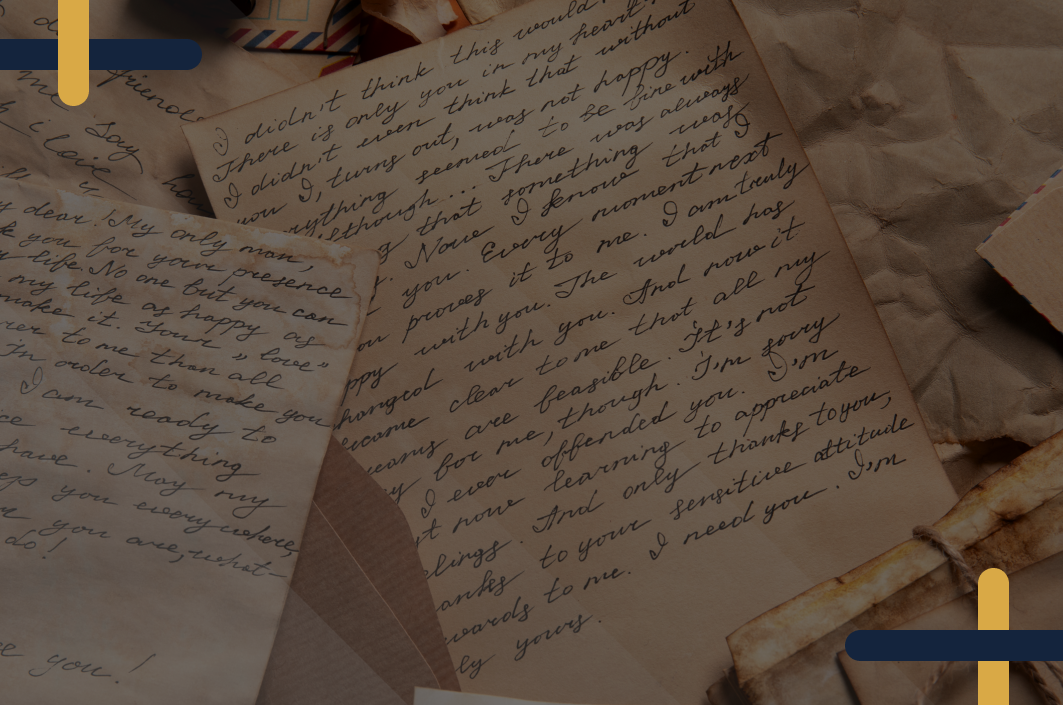 friend
me
I didn't think this would
There is only you in my heart.
I didn't even think that without
you I, turns out, was not happy.
rything seemed to be fine with
lthough... There was always
g that something was
. Now I know that I
you. Every moment next
ou proves it to me. I am truly
ppy with you. The world has
hanged with you. And now it
ecame clear to me that all my
reams are feasible. It's not
y for me, though. I'm sorry
I ever offended you. I'm
t now learning to appreciate
elings. And only thanks to you,
anks to your sensitive attitude
wards to me. I need you. I'm
ly yours.
y dear! My only man,
k you for your presence
y life. No one but you can
my life as happy as
make it. Your „love”
er to me than all
In order to make you
I am ready to
ce everything
have. May my
eps you everywhere,
you are, what-
do!
e you!